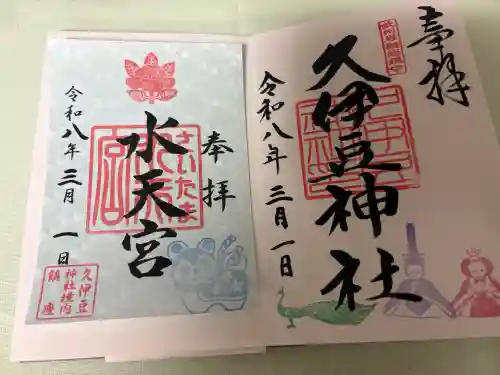 奉拝
久伊豆神社
令和八年三月一日
奉拝
さいたま
水天宮
令和八年三月一日
久伊豆
神社境内
鎮座